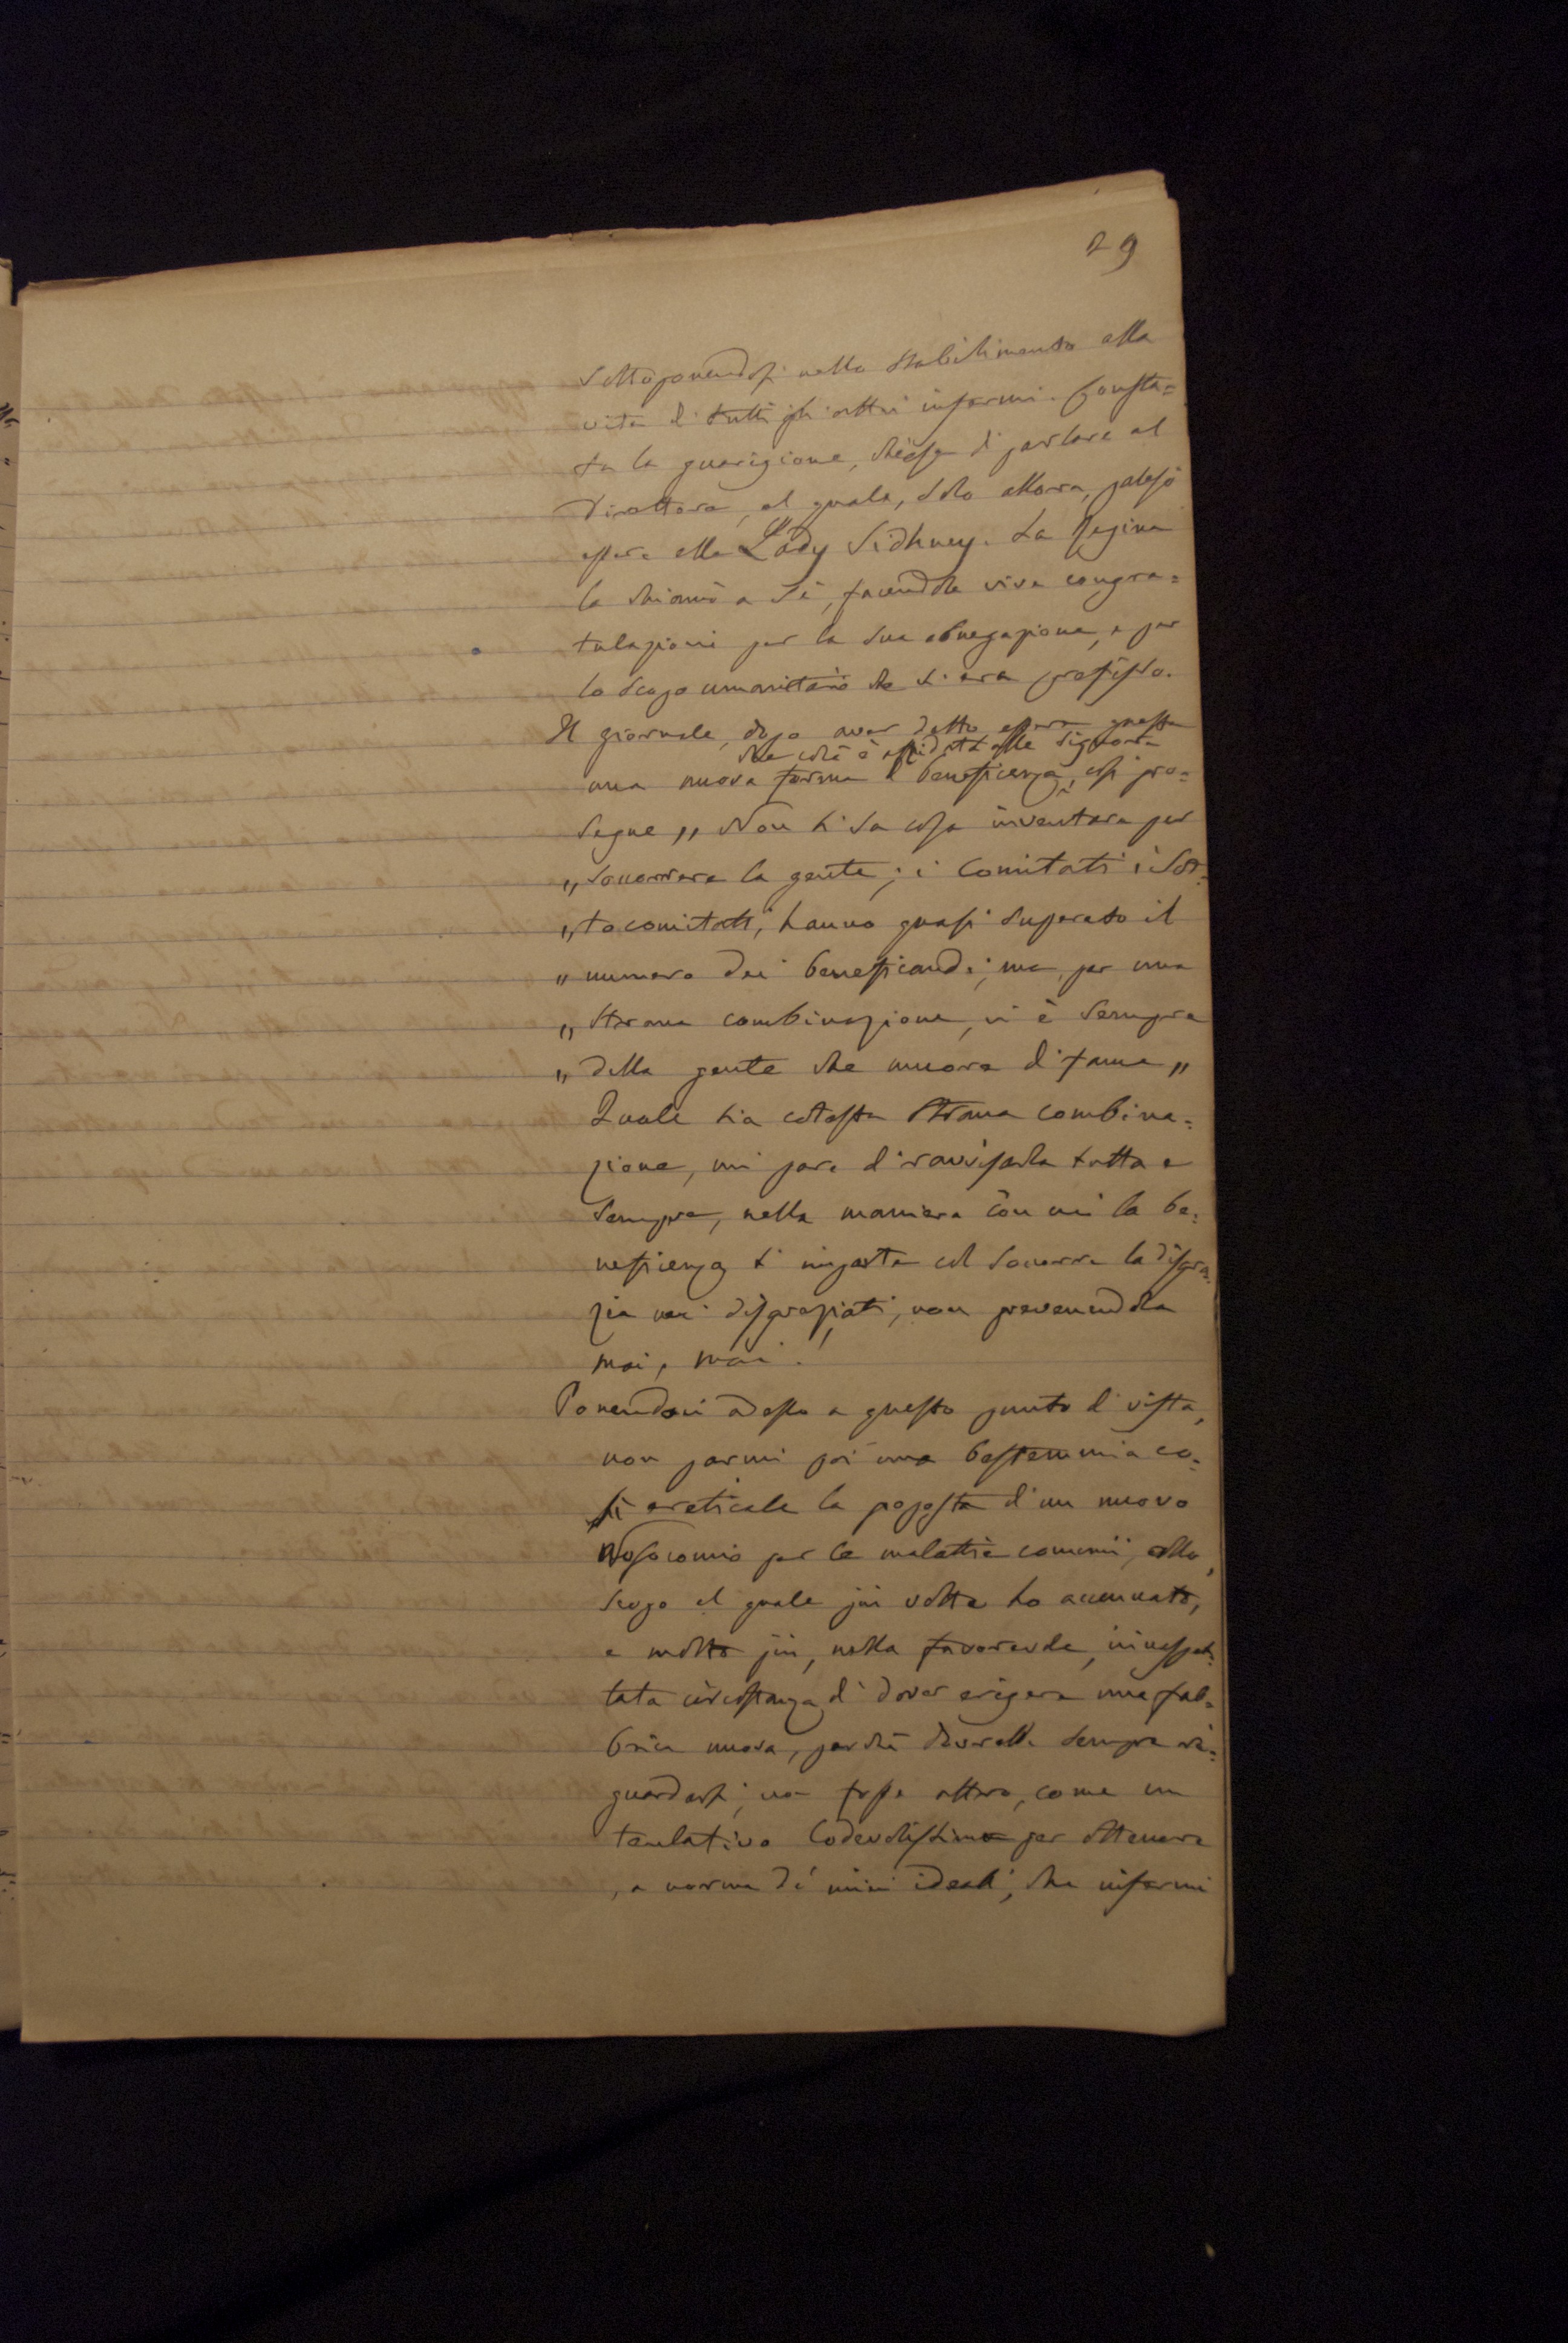 29
Sottoponendosi nello stabilimento alla
vita di tutti gli altri infermi. Consta=
ta la guarigione, chiese di parlare al
Direttore, al quale, solo allora, palesò
essere ella Lady Sidhney. La Regina
la chiamò a Sè, facendole vive congra=
tulazioni per la sua abnegazione, e per
lo scopo umanitario che si era prefisso.
Il giornale, dopo aver detto essere questa
che colà è affidata alle Signore
una nuova forma di beneficenza, così pro=
segue „ Non si sa cosa inventare per
„ soccorrere la gente; i Comitati i Sot=
„ tocomitati, hanno quasi superato il
„ numero dei beneficandi; ma, per una
„ strana combinazione, vi è sempre
„ della gente che muore di fame „
Quale sia cotesta strana combina=
zione, mi pare di ravvisarla tutta e
sempre, nella maniera con cui la be=
neficenza s'imparte col soccorre la disgra=
zia nei disgraziati, non prevenendola
mai, mai!
Ponendoci adesso a questo punto di vista,
non parmi poi una bestemmia co=
sì ereticale la proposta d'un nuovo
Nosocomio per le malattie comuni, allo
scopo al quale più volte ho accennato,
e molto più, nella favorevole, inaspet=
tata circostanza di dover erigere una fab=
brica nuova, perchè dovrebbe sempre ri=
guardarsi, non fosse altro, come un
tentativo lodevolissimo per ottenere
, a norma de' miei ideali, che infermi